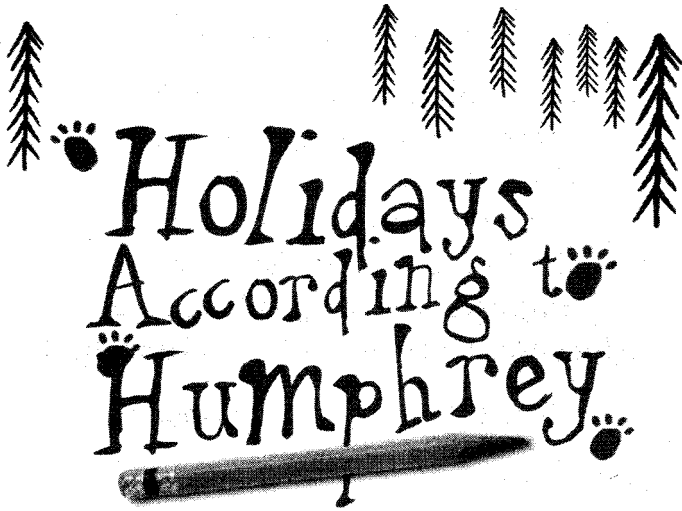 Holidays
According to
Humphrey